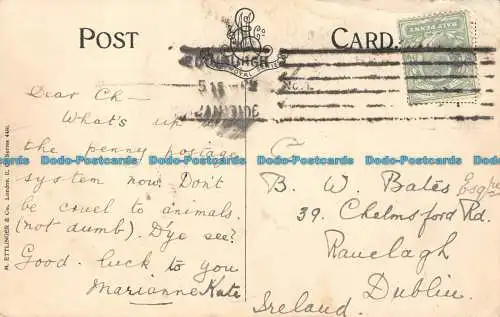 POST
CARD.
HALFPENNY
EDINBURGH
Dear Ch—
What's up
the penny postage
system now. Don't
be cruel to animals.
(not dumb). D'ye see?
Good luck to you
Marianne Kate
B. W. Bates Esqre
39. Chelmsford Rd.
Ranelagh
Dublin.
Ireland.
M. ETTLINGER & Co., London, E.
Dodo-Postcards Dodo-Postcards Dodo-Postcards Dodo-Postcards
Dodo-Postcards Dodo-Postcards Dodo-Postcards Dodo-Postcards